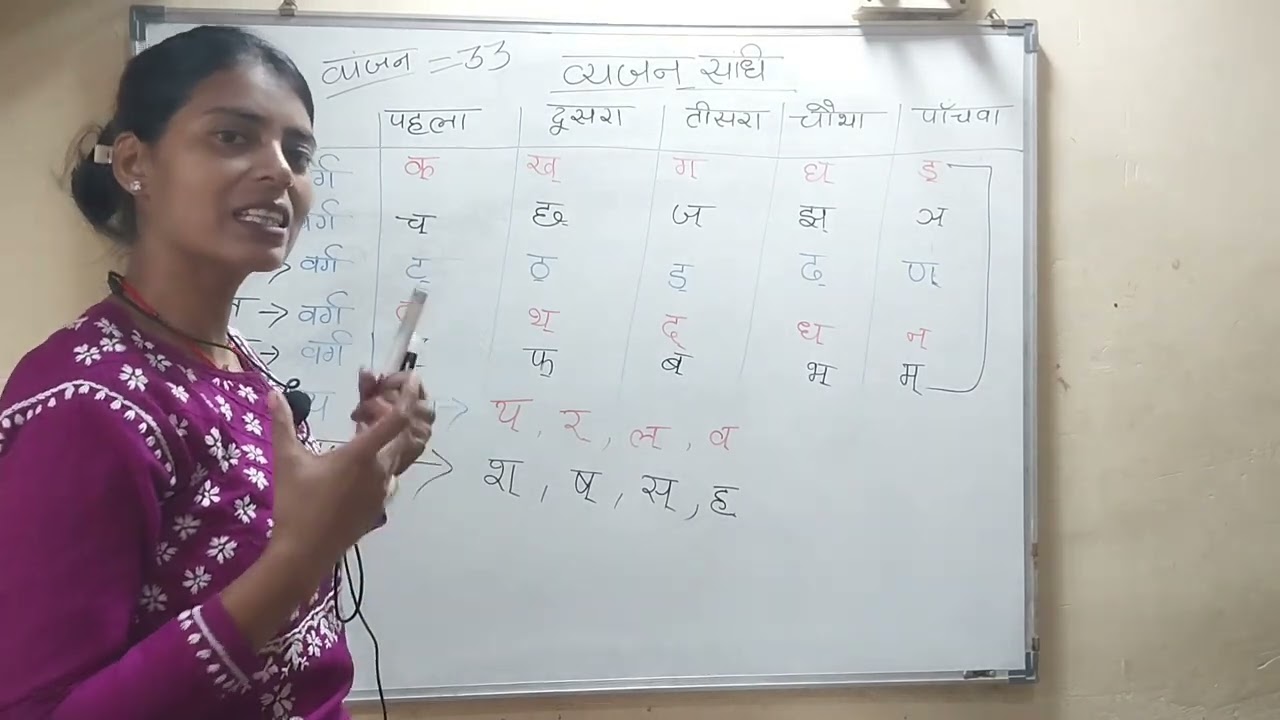 व्यंजन = 33 व्यजन संधि
पहला दूसरा तीसरा चौथा पाँचवा
क् ख् ग् घ् ङ्
च् छ् ज् झ् ञ
वर्ग ट् ठ् ड् ढ् ण्
त → वर्ग थ् द् ध् न्
→ वर्ग फ् ब् भ् म्
→ य्, र्, ल्, व्
→ श्, ष्, स्, ह्